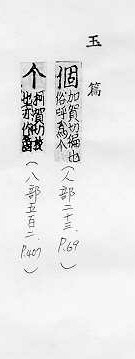 玉篇
個加賀切偏也
俗呼為个
(人部二十三、P.69)
个柯賀切枚
也亦作箇
(八部五百二、P.407)